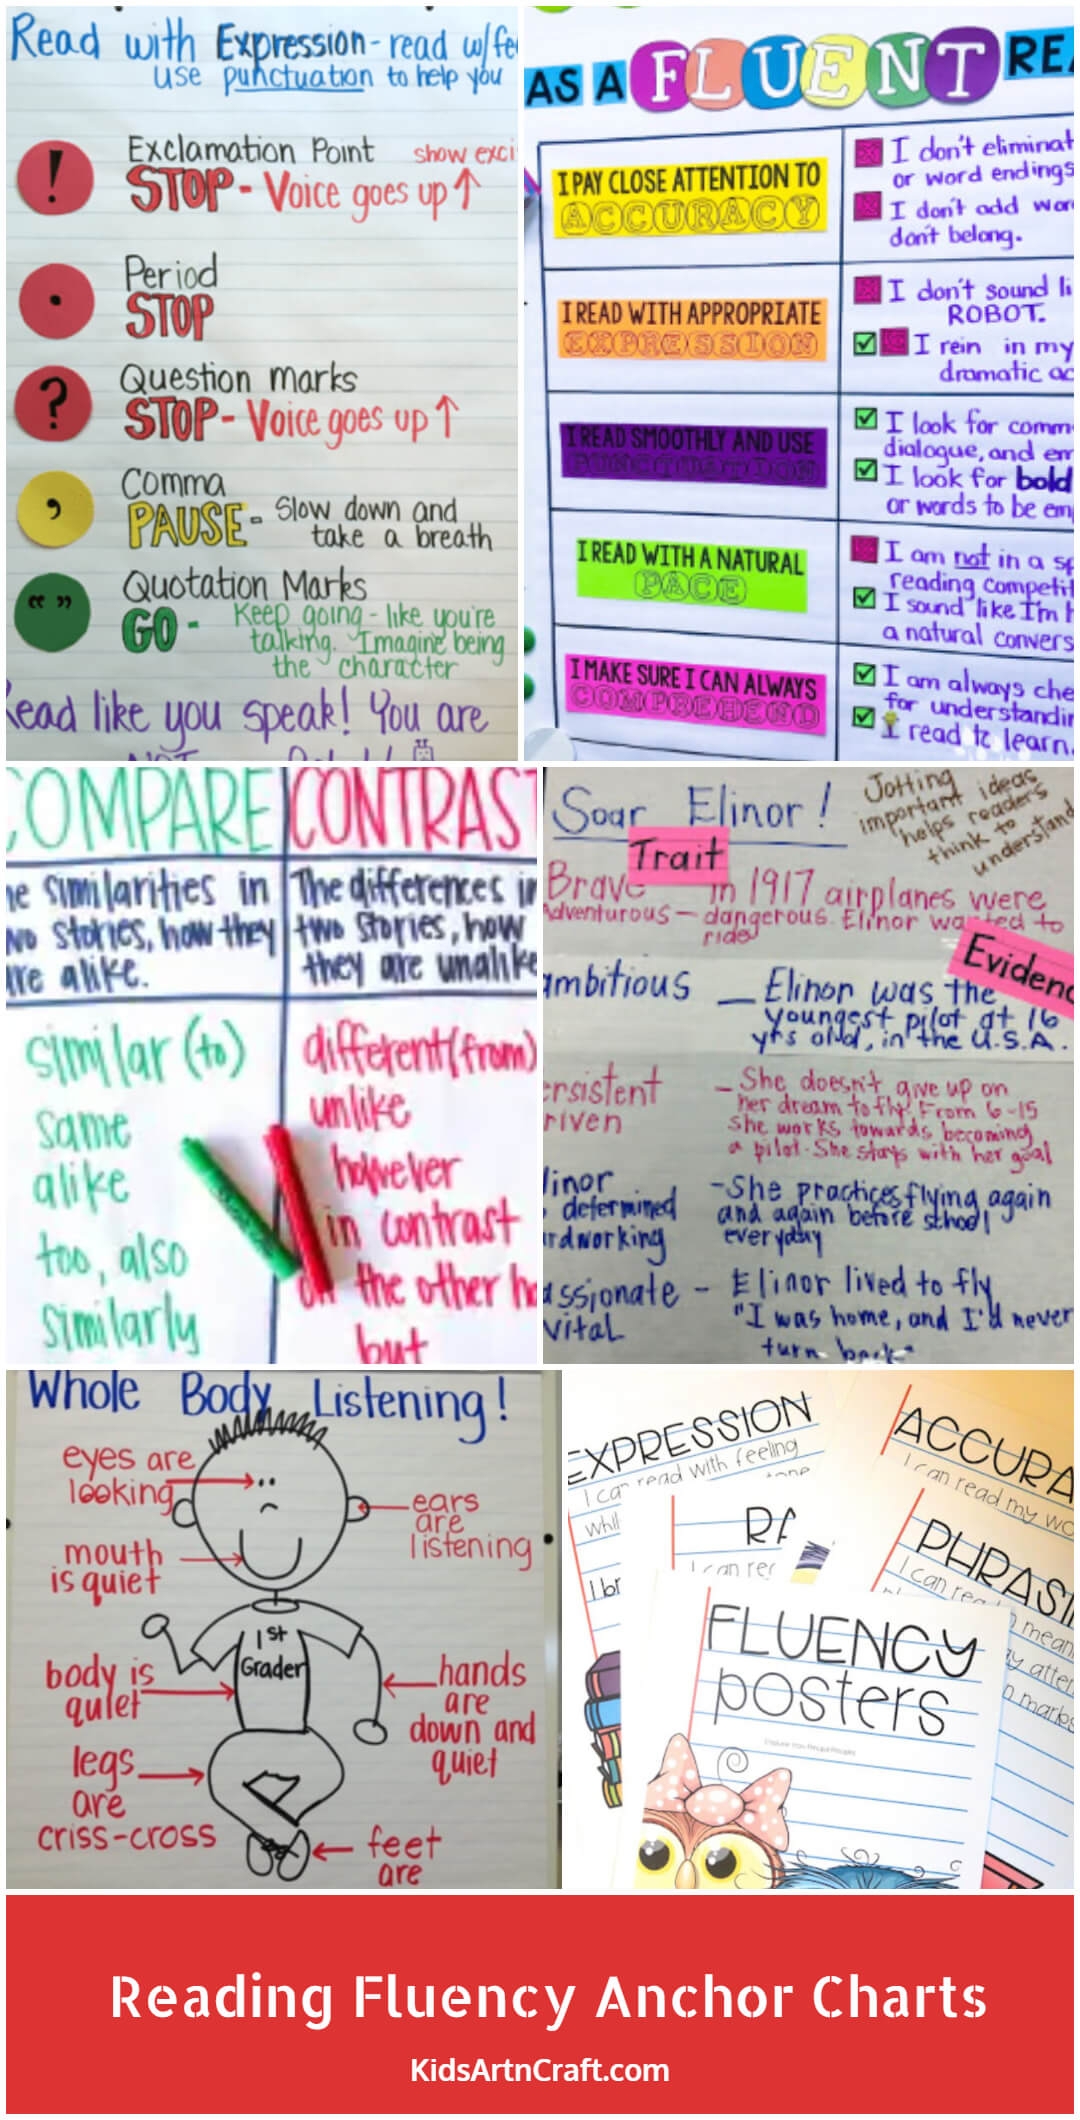 Read with Expression - read w/fe
use punctuation to help you
!
Exclamation Point show exci
STOP - Voice goes up ↑
.
Period
STOP
?
Question marks
STOP - Voice goes up ↑
,
Comma
PAUSE - Slow down and
take a breath
“ ”
Quotation Marks
GO - Keep going - like you're
talking. Imagine being
the character
Read like you speak! You are
NOT
AS A FLUENT REA
I PAY CLOSE ATTENTION TO
ACCURACY
I don't eliminat
or word endings
I don't add wor
don't belong.
I READ WITH APPROPRIATE
EXPRESSION
I don't sound li
ROBOT.
I rein in my
dramatic ac
I READ SMOOTHLY AND USE
PUNCTUATION
I look for comm
dialogue, and em
I look for bold
or words to be em
I READ WITH A NATURAL
PACE
I am not in a sp
reading competit
I sound like I'm h
a natural convers
I MAKE SURE I CAN ALWAYS
COMPREHEND
I am always che
for understandin
I read to learn.
COMPARE
he similarities in
wo stories, how they
are alike.
similar (to)
same
alike
too, also
similarly
CONTRAST
The differences in
two stories, how
they are unalike
different (from)
unlike
however
in contrast
on the other ha
but
Soar Elinor!
Jotting
important ideas
helps readers
think to
understand
Trait
Evidenc
Brave In 1917 airplanes were
Adventurous - dangerous. Elinor wanted to
ride
ambitious - Elinor was the
youngest pilot at 16
yrs old, in the U.S.A.
ersistent - She doesn't give up on
riven her dream to fly. From 6-15
she works towards becoming
a pilot. She stays with her goal
linor - She practices flying again
determined and again before school
ardworking everyday
assionate - Elinor lived to fly
vital "I was home, and I'd never
turn back"
Whole Body Listening!
eyes are
looking
ears
are
listening
mouth
is quiet
1st
Grader
body is
quiet
hands
are
down and
quiet
legs
are
criss-cross
feet
are
EXPRESSION
I can read with feeling
tone
whil
I br
RA
I can rea
ACCURA
I can read my wo
PHRASI
I can rea
n mean
ay atte
n marks
FLUENCY
posters
Reading Fluency Anchor Charts
KidsArtnCraft.com